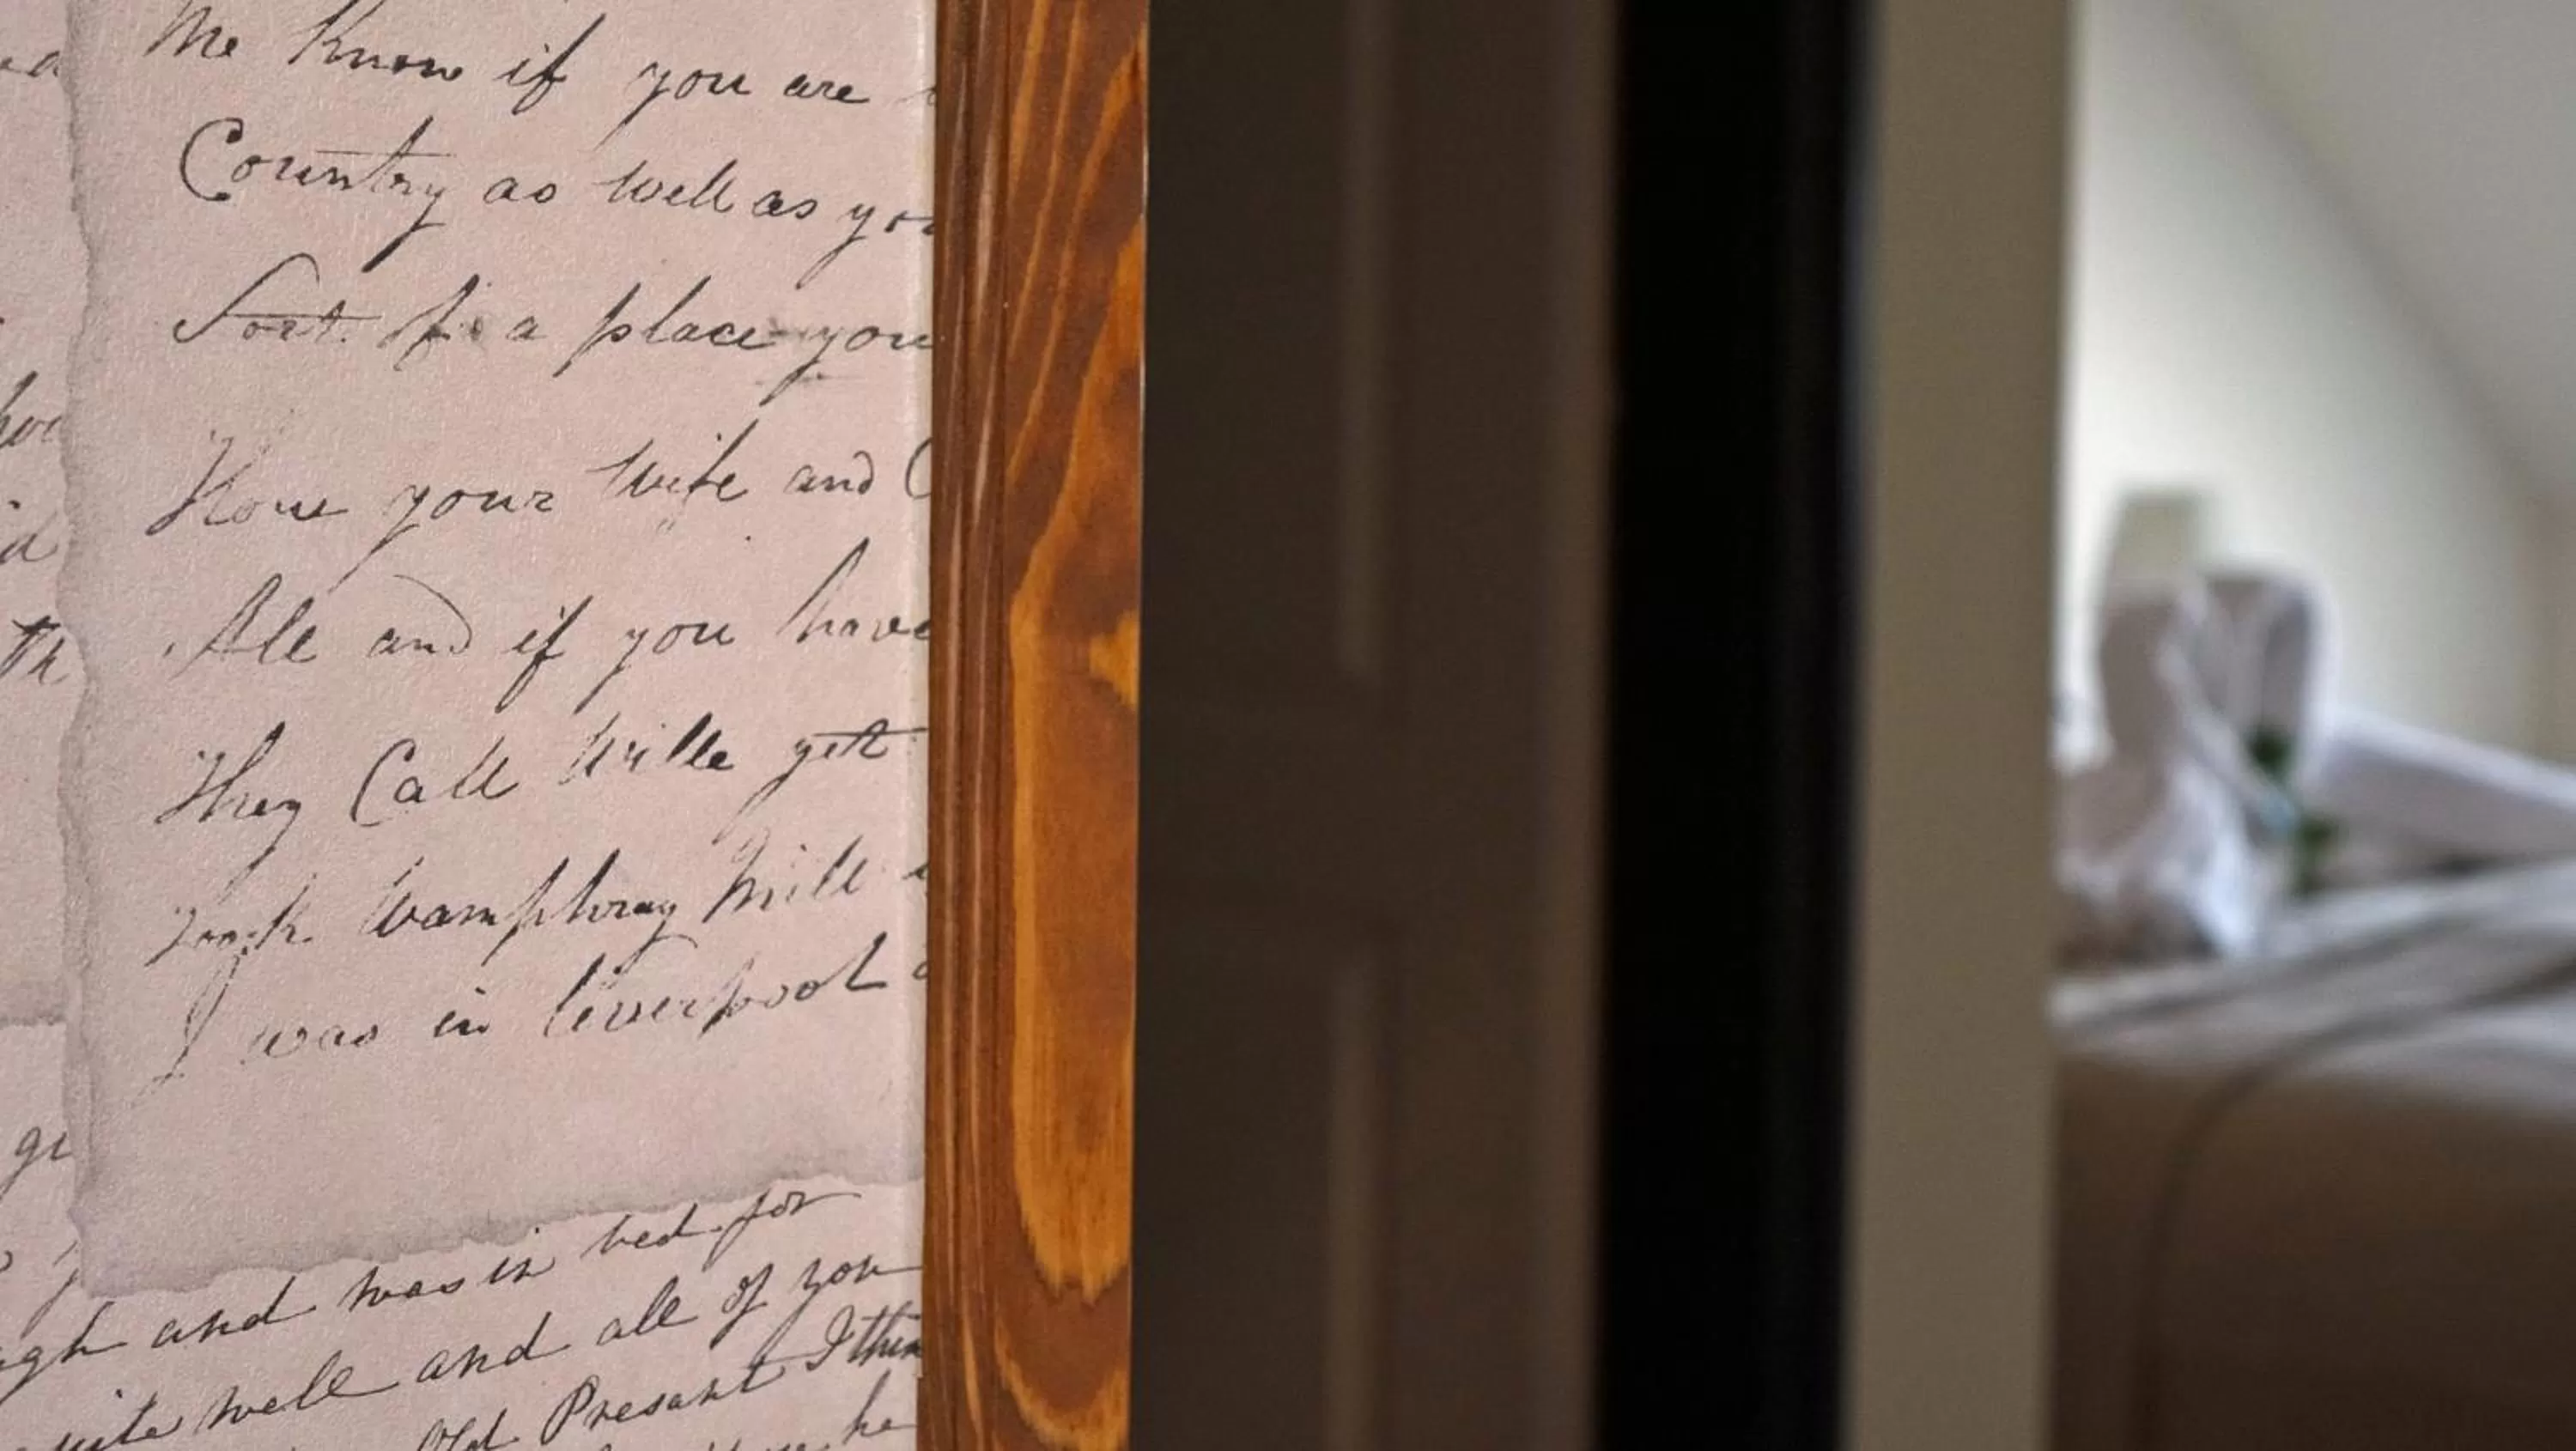 me know if you are
Country as well as you
Sort of a place you
How your wife and
All and if you have
They Call Wille yet
Took Wamphray Mill
I was in liverpool
and was in bed for
quite well and all of you
Old Present I thin
he